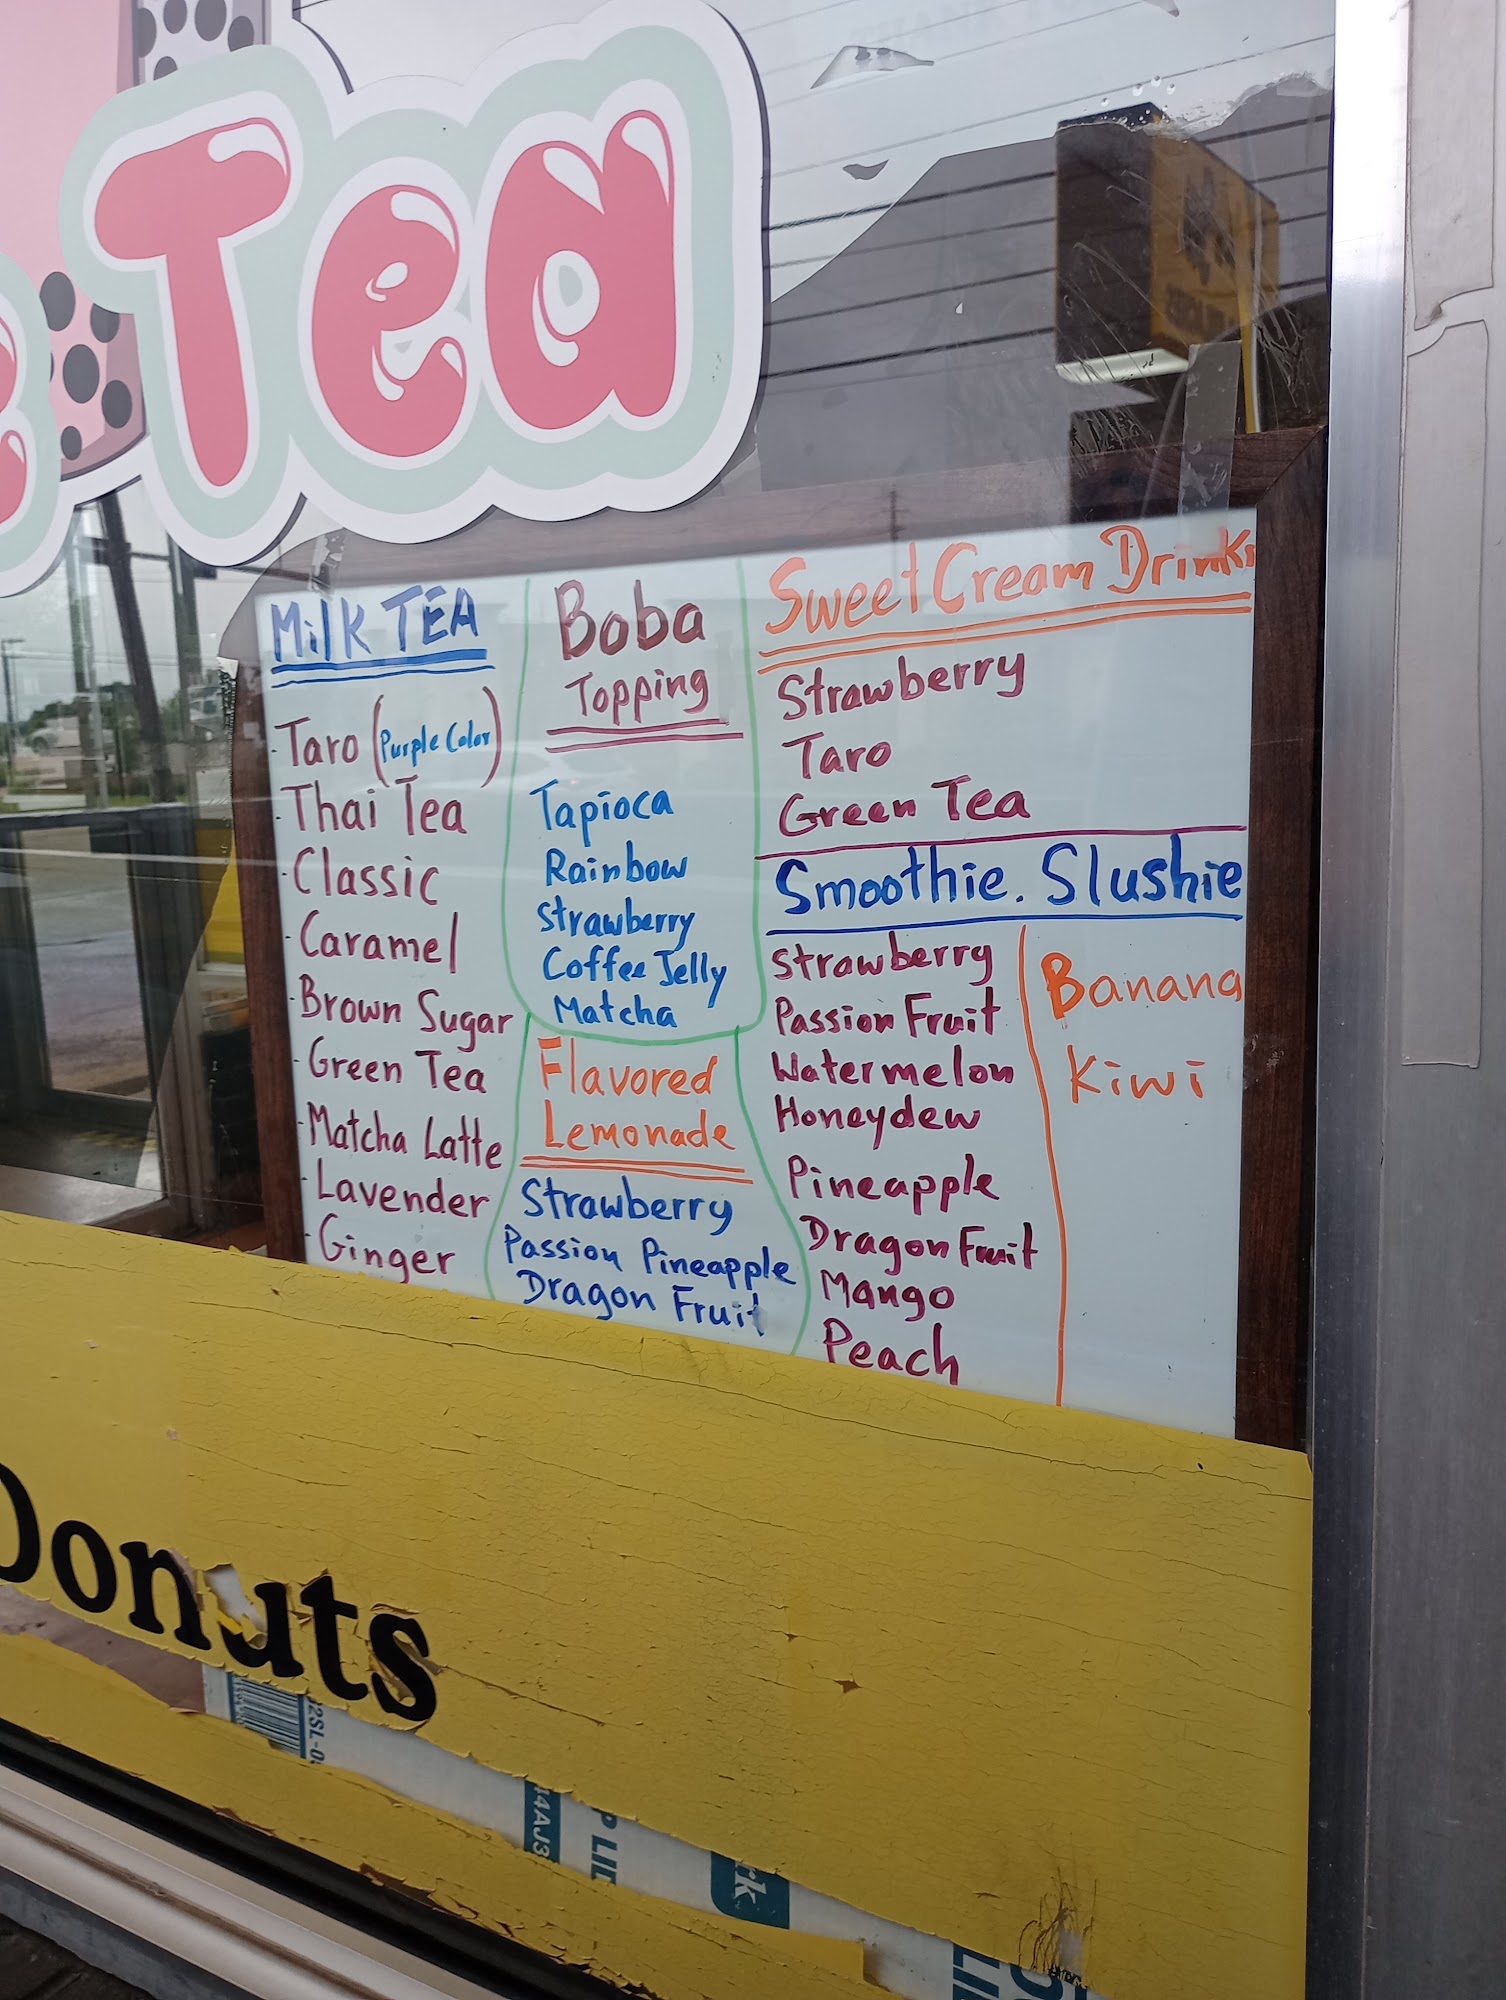 Tea
Milk TEA
Taro (Purple Color)
Thai Tea
Classic
Caramel
Brown Sugar
Green Tea
Matcha Latte
Lavender
Ginger
Boba
Topping
Tapioca
Rainbow
Strawberry
Coffee Jelly
Matcha
Flavored
Lemonade
Strawberry
Passion Pineapple
Dragon Fruit
Sweet Cream Drinks
Strawberry
Taro
Green Tea
Smoothie. Slushie
Strawberry
Passion Fruit
Watermelon
Honeydew
Pineapple
Dragon Fruit
Mango
Peach
Banana
Kiwi
Donuts